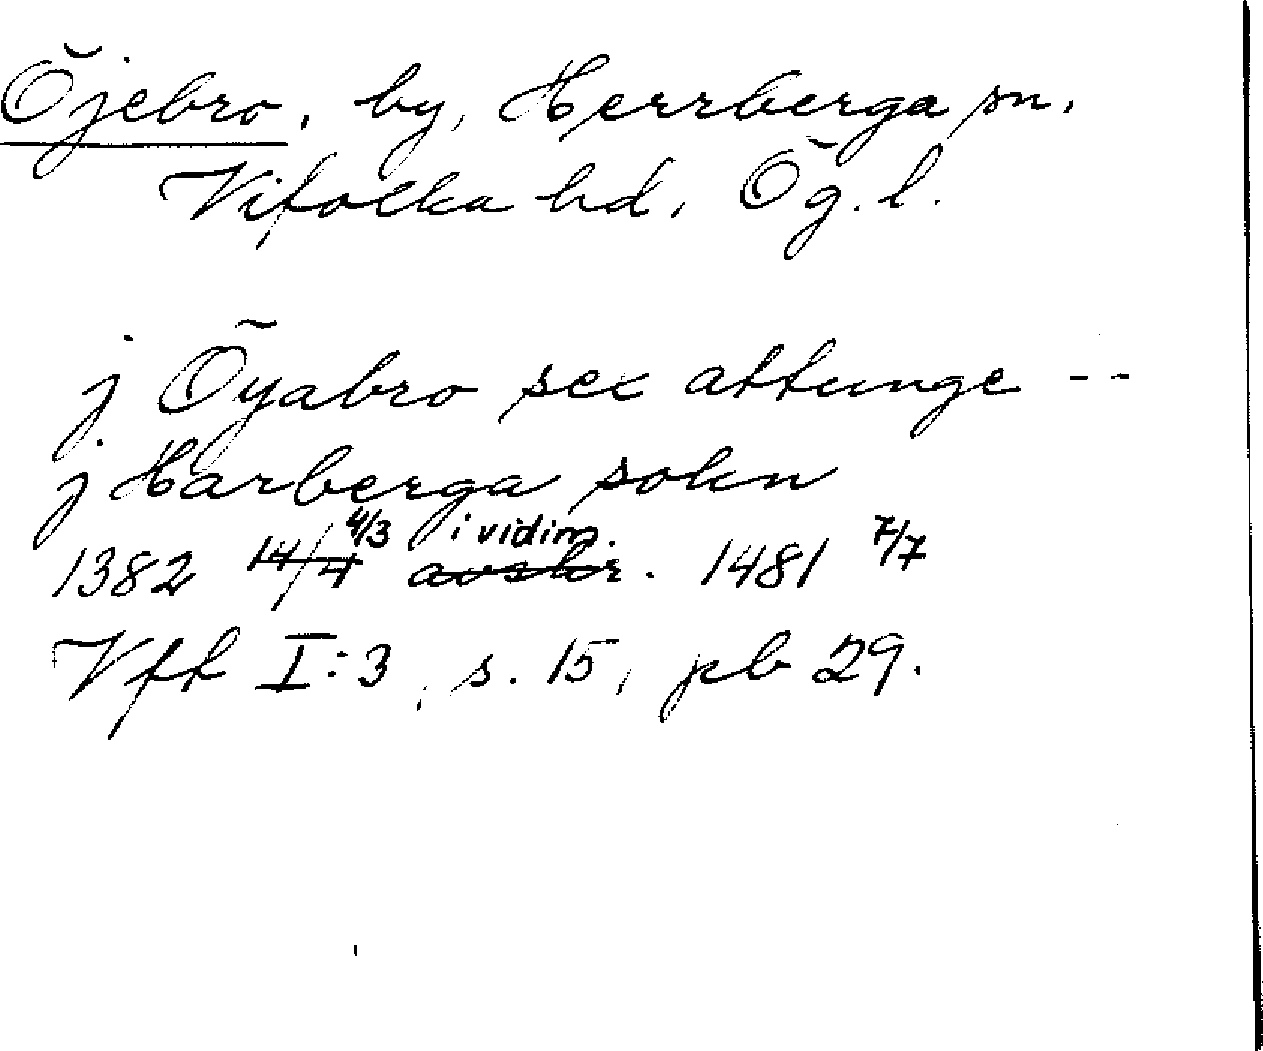 Öjebro, by, Herrberga sn.
Vifolka hd, Ög. l.
j Öyabro sex attunge --
j Harberga sokn
4/3 i vidim.
1382 14/4 avskr. 1481 7/7
Vfk I:3, s. 15, pb 29.